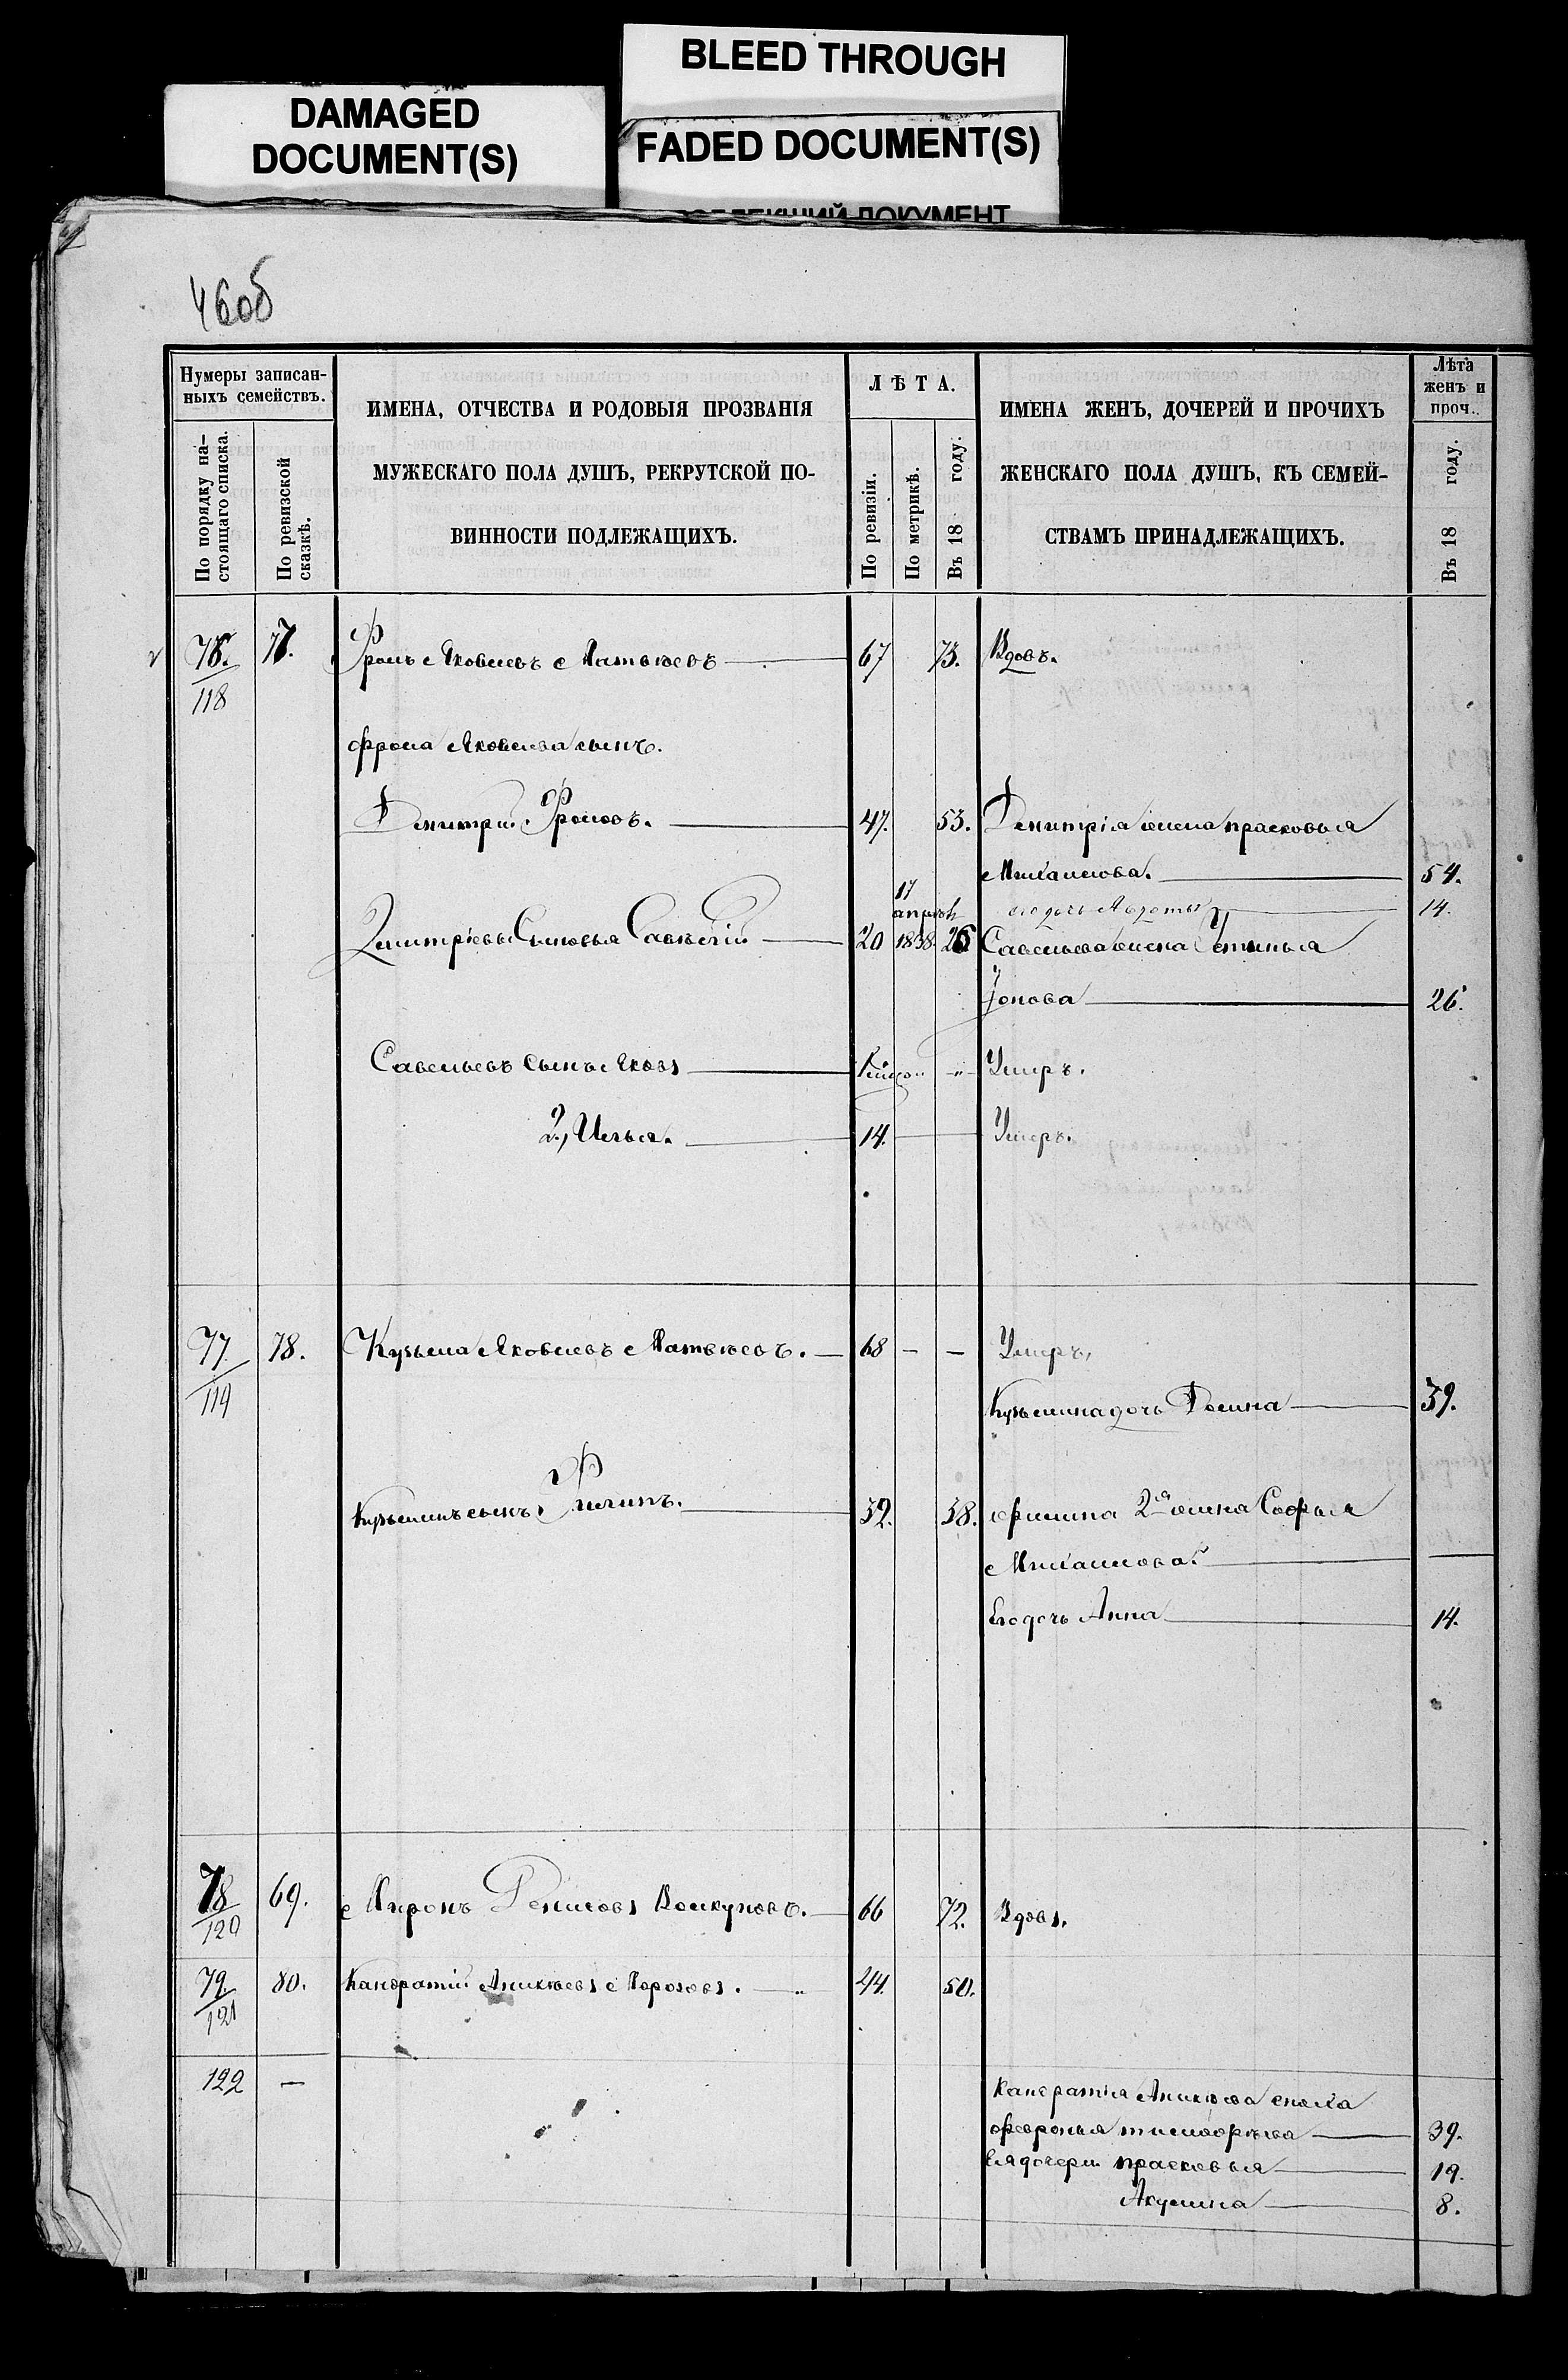 DAMAGED
DOCUMENT(S)
BLEED THROUGH
FADED DOCUMENT(S)
ДОКУМЕНТ
46об
Нумеры записан-
ныхъ семействъ.
По порядку на-
стоящаго списка.
По ревизской
сказкѣ.
ИМЕНА, ОТЧЕСТВА И РОДОВЫЯ ПРОЗВАНІЯ
МУЖЕСКАГО ПОЛА ДУШЪ, РЕКРУТСКОЙ ПО-
ВИННОСТИ ПОДЛЕЖАЩИХЪ.
ЛѢТА.
По ревизіи.
По метрикѣ.
Въ 18 году.
ИМЕНА ЖЕНЪ, ДОЧЕРЕЙ И ПРОЧИХЪ
ЖЕНСКАГО ПОЛА ДУШЪ, КЪ СЕМЕЙ-
СТВАМЪ ПРИНАДЛЕЖАЩИХЪ.
Лѣта
женъ и
проч..
Въ 18 году.
76. 77. Фролъ Яковлевъ Матвѣевъ 67 73. Вдовъ.
118
Фрола Яковлева сынъ.
Дмитрій Фроловъ. 47. 53. Дмитрія жена Прасковья
Михайлова. 54.
его дочь 14.
Дмитріевы Сыновья Савелій 20 17 апрѣля 1838 26 Савельева жена Устинья
Іонова 26.
Савельевъ Сынъ Яковъ Умеръ.
2, Илья. 14. Умеръ.
77 78. Кузьма Яковлевъ Матвѣевъ. 68 — — Умеръ,
119
Кузьмина дочь Домна 39.
Кузьминъ сынъ Филипъ. 32. 38. Филипа 2я жена Софья
Михайлова. —
Его дочь Анна 14.
78 69. Миронъ Денисовъ 66 72. Вдовъ.
120
79 80. Кандратій Аникѣевъ Морозовъ. 44. 50.
121
122 —
Кандратія Аникѣева жена
Февронья 39.
Ея дочери Прасковья 19.
Акулина 8.